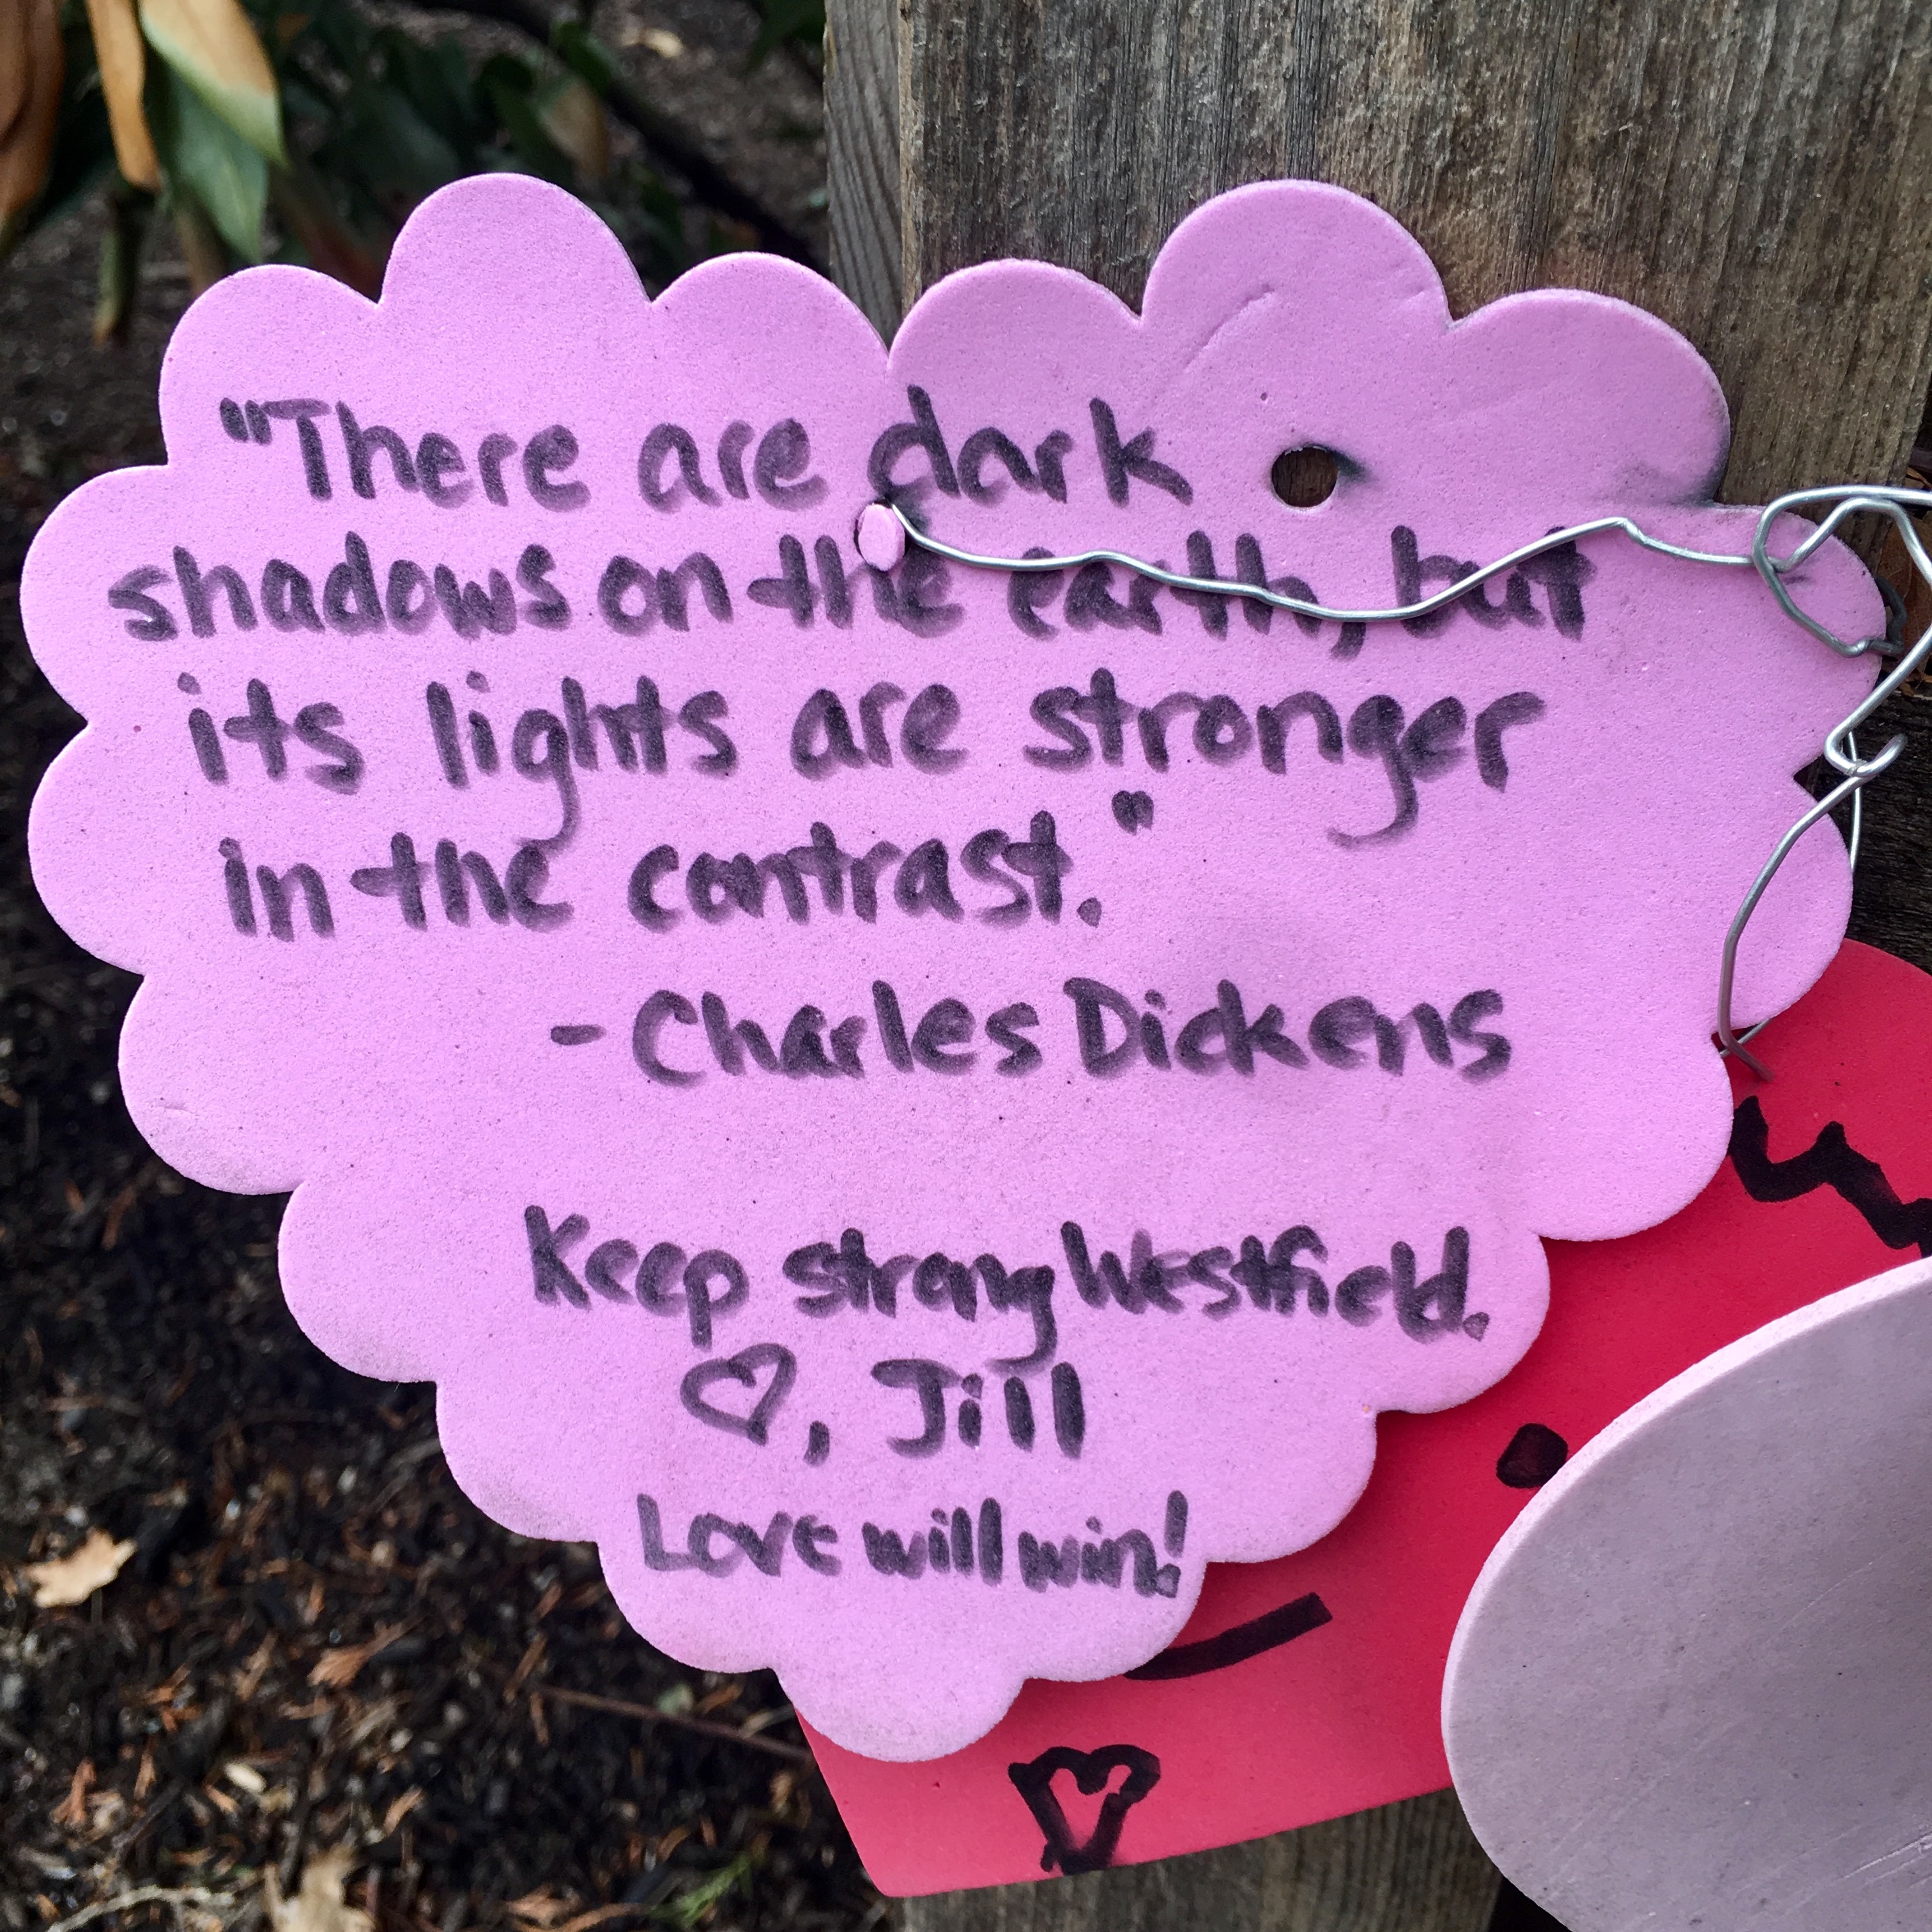 "There are dark
shadows on the earth, but
its lights are stronger
in the contrast."
- Charles Dickens
Keep strong Westfield.
♡, Jill
Love will win!